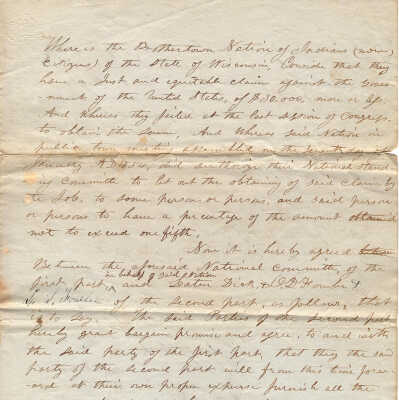 Whereas the Brothertown Nation of Indians (now
Citizens) of the State of Wisconsin, Consider that they
have a Just and equitable claim against the Gover-
nment of the United States, of $30.000, more or less
And whereas they failed at the last Session of Congress
to obtain the Same, And Whereas said Nation in
public town meeting assembled on the
January A.D. did authorize their National Stand-
ing Committe to let out the obtaining of Said Claim by
the Job, to some person or persons, and said person
or persons to have a precentage of the amount obtained
not to exceed one fifth.
Now it is hereby agreed
Between the aforesaid National Committe, of the
in behalf of said Nation
first part, and Daten Dick & O.D. Fowler &
of the Second part, as follows, that
is to Say. The Said Parties of the Second part
hereby grant bargain promise and agree, to and with
the Said party of the first part, that they the said
party of the second part will from this time forw-
ard at their own proper expense furnish all the